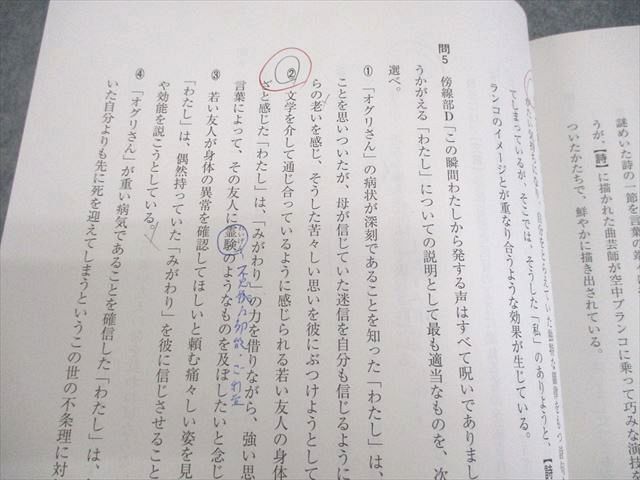 謎めいた詩の一節を言葉の
うが、【詩】に描かれた曲芸師が空中ブランコに乗って巧みな演技を
ついたかたちで、鮮やかに描き出されている。
てしまっているが、そこでは、そうした「私」のありようと、【詩
ランコのイメージとが重なり合うような効果が生じている。
問5 傍線部D「この瞬間わたしから発する声はすべて呪いでありまし
うかがえる「わたし」についての説明として最も適当なものを、次
選べ。
① 「オグリさん」の病状が深刻であることを知った「わたし」は、
ことを思いついたが、母が信じていた迷信を自分も信じるように
らの老いを感じ、そうした苦々しい思いを彼にぶつけようとして
② 文学を介して通じ合っているように感じられる若い友人の身体
ざと感じた「わたし」は、「みがわり」の力を借りながら、強い思
言葉によって、その友人に霊験のようなものを及ぼしたいと念じ
③ 若い友人が身体の異常を確認してほしいと頼む痛々しい姿を見
「わたし」は、偶然持っていた「みがわり」を彼に信じさせること
や効能を説こうとしている。
④ 「オグリさん」が重い病気であることを確信した「わたし」は、
いた自分よりも先に死を迎えてしまうというこの世の不条理に対